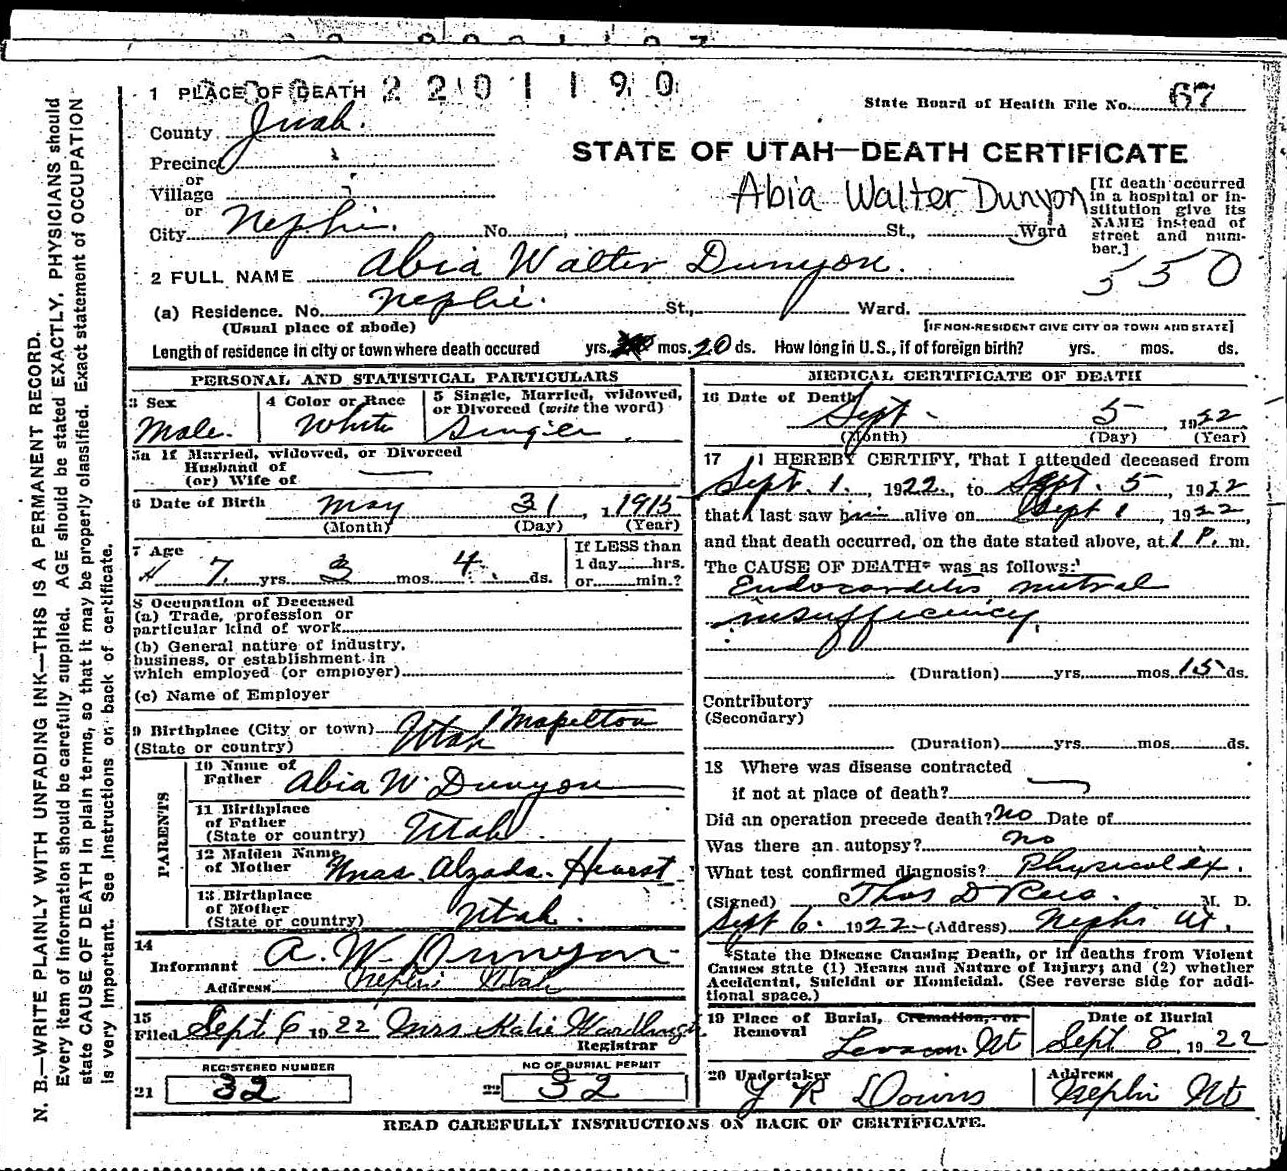 2201190
1 PLACE OF DEATH
State Board of Health File No. 67
County Juab.
STATE OF UTAH—DEATH CERTIFICATE
Precinct
or
Village
or
Abia Walter Dunyon
[If death occurred in a hospital or institution give its NAME instead of street and number.]
City Nephi. No. St., Ward
550
2 FULL NAME Abia Walter Dunyon.
(a) Residence. No. Nephi. St., Ward.
(Usual place of abode) [IF NON-RESIDENT GIVE CITY OR TOWN AND STATE]
Length of residence in city or town where death occured yrs. mos. 20 ds. How long in U.S., if of foreign birth? yrs. mos. ds.
PERSONAL AND STATISTICAL PARTICULARS
3 Sex
Male.
4 Color or Race
White
5 Single, Married, widowed,
or Divorced (write the word)
Single
5a If Married, widowed, or Divorced
Husband of
(or) Wife of
6 Date of Birth May 31, 1915
(Month) (Day) (Year)
7 Age
7 yrs 3 mos. 4 ds.
If LESS than
1 day hrs.
or min.?
8 Occupation of Deceased
(a) Trade, profession or
particular kind of work
(b) General nature of industry,
business, or establishment in
which employed (or employer)
(c) Name of Employer
9 Birthplace (City or town) Mapelton
(State or country) Utah
PARENTS
10 Name of
Father Abia W. Dunyon
11 Birthplace
of Father
(State or country) Utah.
12 Maiden Name
of Mother Alzada
13 Birthplace
of Mother
(State or country) Utah.
14
Informant A. W. Dunyon
Address Nephi Utah
15
Filed Sept 6 1922 Mrs Katie
Registrar
REGISTERED NUMBER
21 32
NO OF BURIAL PERMIT
22 32
MEDICAL CERTIFICATE OF DEATH
16 Date of Death
Sept. 5, 1922
(Month) (Day) (Year)
17 I HEREBY CERTIFY, That I attended deceased from
Sept. 1, 1922, to Sept. 5, 1922
that I last saw him alive on Sept 1, 1922,
and that death occurred, on the date stated above, at 1 P. m.
The CAUSE OF DEATH* was as follows:
Endocarditis mitral
insufficiency.
(Duration) yrs. mos. 15 ds.
Contributory
(Secondary)
(Duration) yrs. mos. ds.
18 Where was disease contracted
if not at place of death?
Did an operation precede death? no Date of
Was there an autopsy? no
What test confirmed diagnosis? Physical ex.
(Signed) Thos D Rees. M. D.
Sept 6. 1922—(Address) Nephi Ut.
*State the Disease Causing Death, or in deaths from Violent
Causes state (1) Means and Nature of Injury; and (2) whether
Accidental, Suicidal or Homicidal. (See reverse side for addi-
tional space.)
19 Place of Burial, Cremation, or
Removal
Levan Ut
Date of Burial
Sept 8, 1922
20 Undertaker
Address
Nephi Ut
READ CAREFULLY INSTRUCTIONS ON BACK OF CERTIFICATE.
N. B.—WRITE PLAINLY WITH UNFADING INK—THIS IS A PERMANENT RECORD.
Every item of information should be carefully supplied. AGE should be stated EXACTLY. PHYSICIANS should
state CAUSE OF DEATH in plain terms, so that it may be properly classified. Exact statement of OCCUPATION
is very important. See instructions on back of certificate.